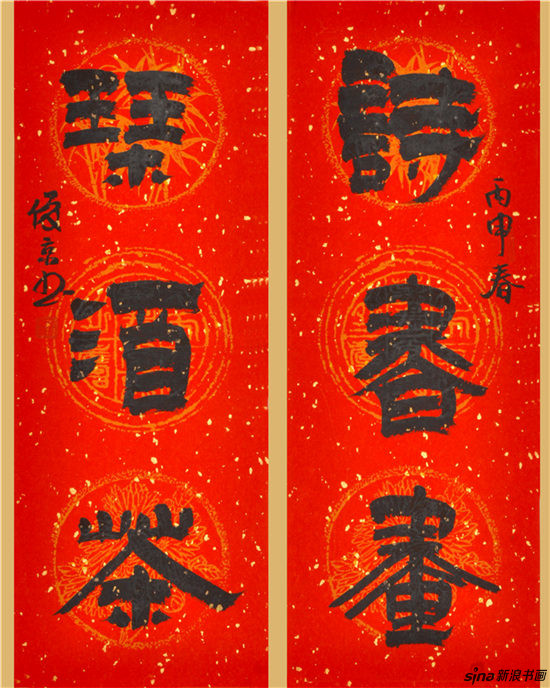 丙申春
詩書畫
琹酒茶
俊京书
sina新浪书画